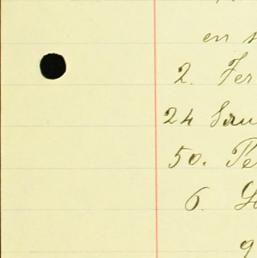 en s
2. Fer
24 Sau
50. Te
6.
g